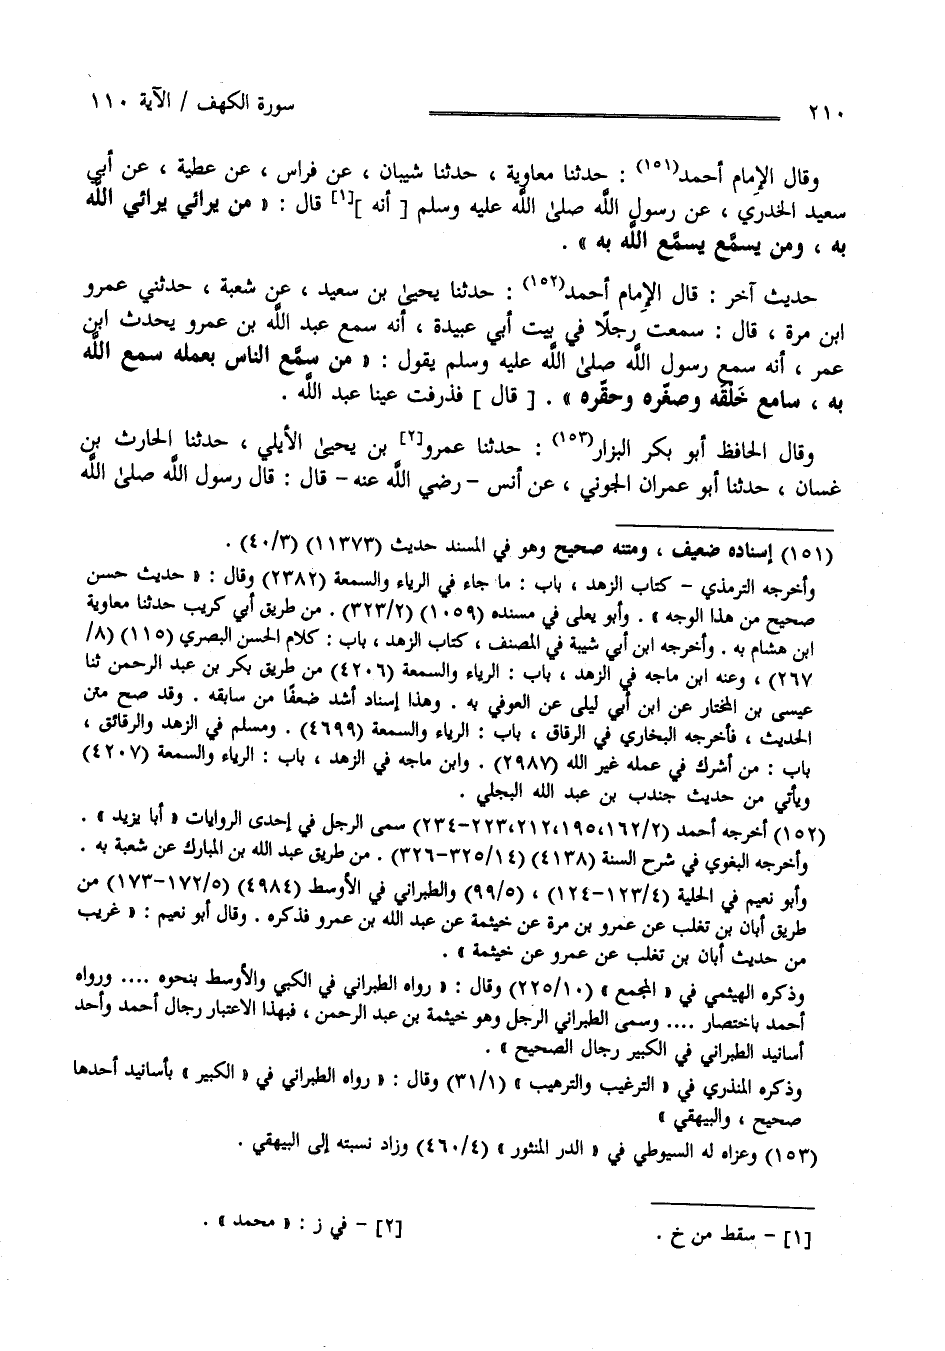 ٢١٠ سورة الكهف / الآية ١١٠
وقال الإمام أحمد(١٥١) : حدثنا معاوية ، حدثنا شيبان ، عن فراس ، عن عطية ، عن أبي
سعيد الخدري ، عن رسول اللَّه صلى اللَّه عليه وسلم [ أنه ][١] قال : « من يرائي يرائي اللَّه
به ، ومن يسمَّع يسمَّع اللَّه به » .
حديث آخر : قال الإمام أحمد(١٥٢) : حدثنا يحيى بن سعيد ، عن شعبة ، حدثني عمرو
ابن مرة ، قال : سمعت رجلًا في بيت أبي عبيدة ، أنه سمع عبد اللَّه بن عمرو يحدث ابن
عمر ، أنه سمع رسول اللَّه صلى اللَّه عليه وسلم يقول : « من سمَّع الناس بعمله سمع اللَّه
به ، سامع خَلْقَه وصغّره وحقّره » . [ قال ] فذرفت عينا عبد اللَّه .
وقال الحافظ أبو بكر البزار(١٥٣) : حدثنا عمرو[٢] بن يحيى الأيلي ، حدثنا الحارث بن
غسان ، حدثنا أبو عمران الجوني ، عن أنس - رضي اللَّه عنه - قال : قال رسول اللَّه صلى اللَّه
(١٥١) إسناده ضعيف ، ومتنه صحيح وهو في المسند حديث (١١٣٧٣) (٤٠/٣) .
وأخرجه الترمذي - كتاب الزهد ، باب : ما جاء في الرياء والسمعة (٢٣٨٢) وقال : « حديث حسن
صحيح من هذا الوجه » . وأبو يعلى في مسنده (١٠٥٩) (٣٢٣/٢) . من طريق أبي كريب حدثنا معاوية
ابن هشام به . وأخرجه ابن أبي شيبة في المصنف ، كتاب الزهد ، باب : كلام الحسن البصري (١١٥) (٨/
٢٦٧) ، وعنه ابن ماجه في الزهد ، باب : الرياء والسمعة (٤٢٠٦) من طريق بكر بن عبد الرحمن ثنا
عيسى بن المختار عن ابن أبي ليلى عن العوفي به . وهذا إسناد أشد ضعفًا من سابقه . وقد صح متن
الحديث ، فأخرجه البخاري في الرقاق ، باب : الرياء والسمعة (٤٦٩٩) . ومسلم في الزهد والرقائق ،
باب : من أشرك في عمله غير الله (٢٩٨٧) . وابن ماجه في الزهد ، باب : الرياء والسمعة (٤٢٠٧)
ويأتي من حديث جندب بن عبد الله البجلي .
(١٥٢) أخرجه أحمد (١٦٢/٢،١٩٥،٢١٢،٢٢٣-٢٣٤) سمى الرجل في إحدى الروايات « أبا يزيد » .
وأخرجه البغوي في شرح السنة (٤١٣٨) (٣٢٥/١٤-٣٢٦) . من طريق عبد الله بن المبارك عن شعبة به .
وأبو نعيم في الحلية (١٢٣/٤-١٢٤) ، (٩٩/٥) والطبراني في الأوسط (٤٩٨٤) (١٧٢/٥-١٧٣) من
طريق أبان بن تغلب عن عمرو بن مرة عن خيثمة عن عبد الله بن عمرو فذكره . وقال أبو نعيم : « غريب
من حديث أبان بن تغلب عن عمرو عن خيثمة » .
وذكره الهيثمي في « المجمع » (٢٢٥/١٠) وقال : « رواه الطبراني في الكبي والأوسط بنحوه .... ورواه
أحمد باختصار .... وسمى الطبراني الرجل وهو خيثمة بن عبد الرحمن ، فبهذا الاعتبار رجال أحمد وأحد
أسانيد الطبراني في الكبير رجال الصحيح » .
وذكره المنذري في « الترغيب والترهيب » (٣١/١) وقال : « رواه الطبراني في « الكبير » بأسانيد أحدها
صحيح ، والبيهقي »
(١٥٣) وعزاه له السيوطي في « الدر المنثور » (٤٦٠/٤) وزاد نسبته إلى البيهقي .
[١] - سقط من خ . [٢] - في ز : « محمد » .